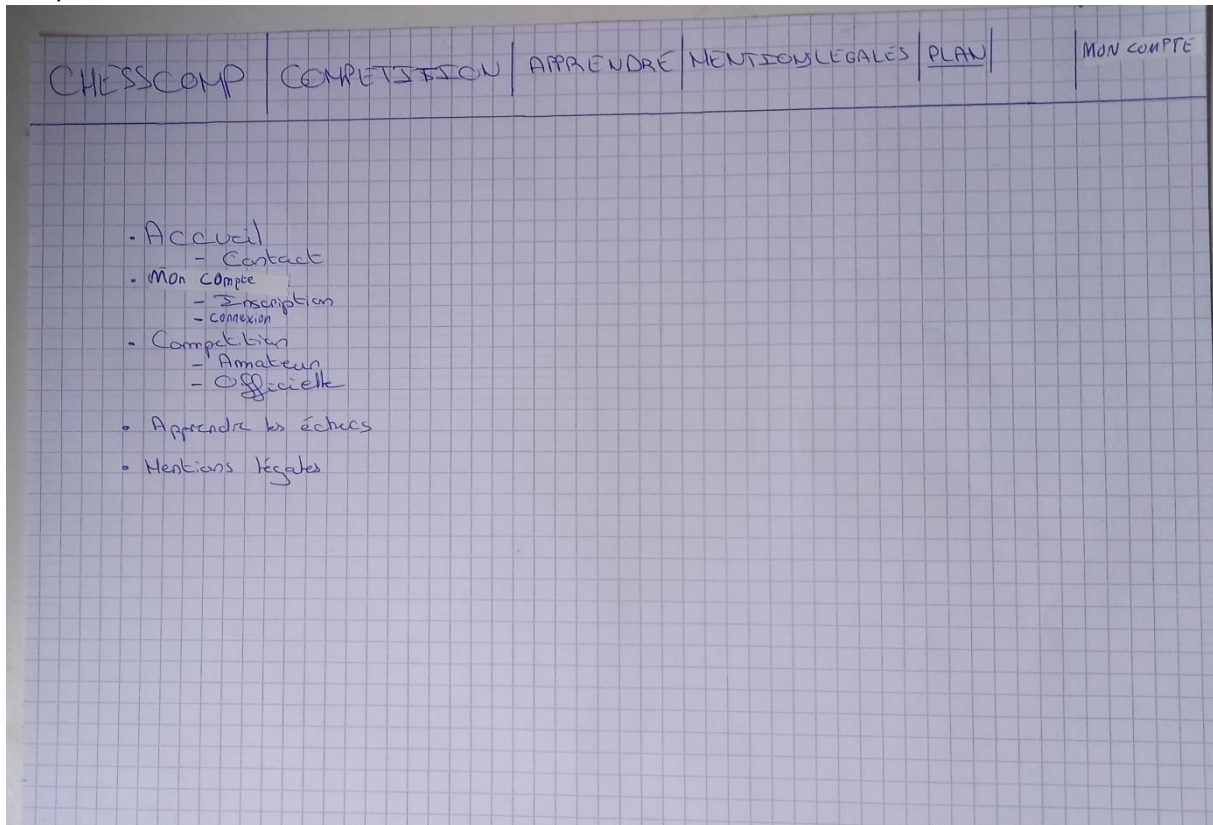 CHESSCOMP | COMPETITION | APPRENDRE | MENTIONS LEGALES | PLAN | MON COMPTE
• Accueil
- Contact
• Mon compte
- Inscription
- connexion
• Compétition
- Amateur
- Officielle
• Apprendre les échecs
• Mentions légales